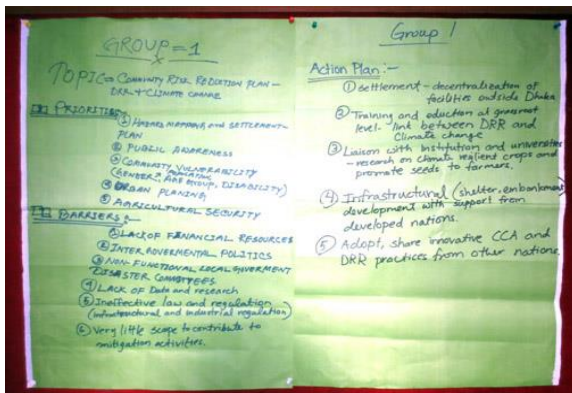 GROUP = 1
TOPIC = COMMUNITY RISK REDUCTION PLAN -
DRR & CLIMATE CHANGE
PRIORITIES:-
① HAZARD MAPPING AND SETTLEMENT-
PLAN
② PUBLIC AWARENESS
③ COMMUNITY VULNERABILITY
(GENDER, AGE GROUP, DISABILITY)
④ URBAN PLANING
⑤ AGRICULTURAL SECURITY
BARRIERS:-
① LACK OF FINANCIAL RESOURCES
② INTER GOVERMENTAL POLITICS
③ NON-FUNCTIONAL LOCAL GOVERMENT
DISASTER COMMITYEES
④ LACK OF Data and research
⑤ Ineffective law and regulation
(infrastructural and industrial regulation)
⑥ Very little scope to contribute to
mitigation activities.
Group 1
Action Plan:-
① Settlement - decentralization of
facilities outside Dhaka
② Training and eduction at grassroot
level. - link between DRR and
Climate change
③ Liaison with Institution and universities
- research on climate resilient crops and
promote seeds to farmers.
④ Infrastructural (shelter, embankment
development with support from
developed nations.
⑤ Adopt, share innovative CCA and
DRR practices from other nations.